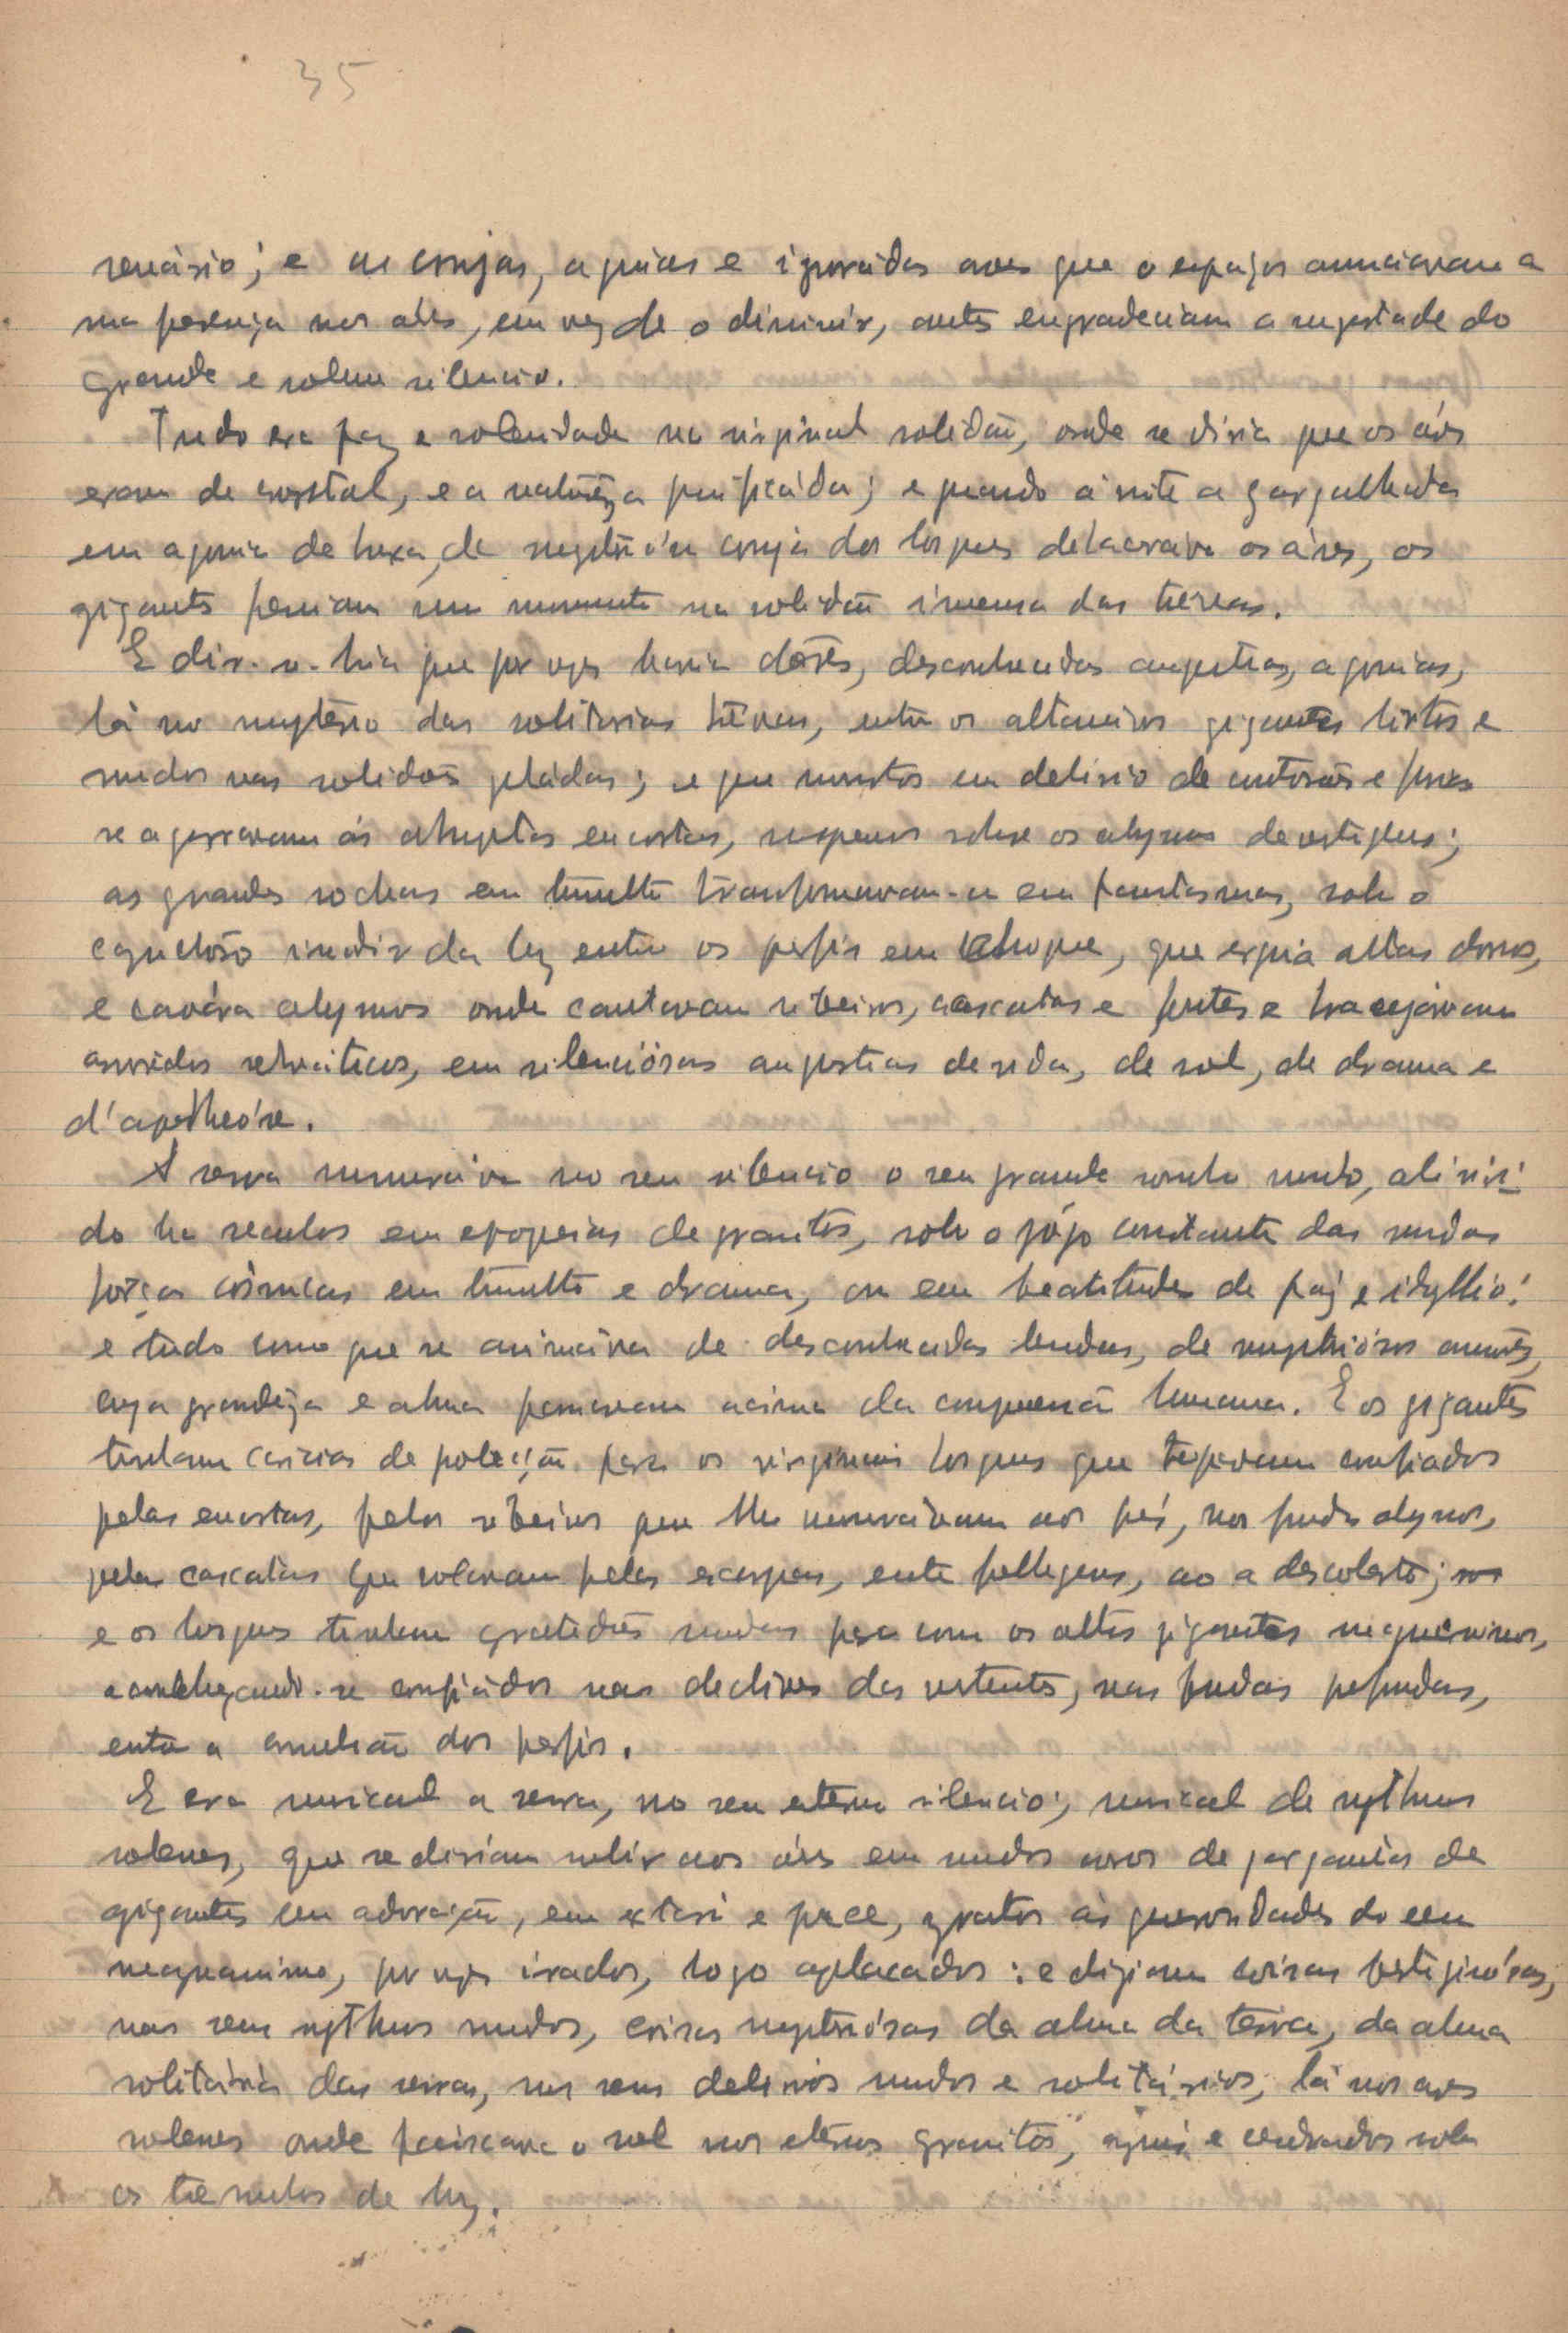 35
scenário; e as corujas, aguias e ignoradas aves que a espaços annunciavam a
sua presença nos ares, em vez de o diminuir, antes engradeciam a magestade do
grande e solene silencio.
Tudo era paz e solenidade na virginal solidão, onde se diria que os áres
eram de crystal, e a naturêza purificáda; e quando á noite a gargalhada
em agonia de bruxa, de mysteriósa coruja dos bosques delacerava os áres, os
gigantes fremiam um momento na solidão imensa das trévas.
E dir-se-hia que por vezes havia dôres, desconhecidas angustias, agonias,
lá no mystério das solitarias trévas, entre os altaneiros gigantes hirtos e
mudos nas solidões geládas; e que monstros em delirio de contorsões e furias
se agarravam ás abruptas encostas, suspensos sobre os abysmos de vertigens;
as grandes rochas em tumulto transformavam-se em fantasmas, sob o
caprichôso incidir da luz entre os perfis em choque, que erguia altos dorsos,
e cavára abysmos onde cantavam ribeiros, cascatas e fontes e tracejávam
arvoredos selváticos, em silenciósas angustias de vida, de sol, de drama e
d'apotheóse.
A serra murmurava no seu silencio o seu grande sonho mudo, ali vivi-
do ha seculos em epopeias de granitos, sob o jôgo constante das mudas
forças cósmicas em tumulto e drama, ou em beatitudes de paz e idyllio;
e tudo como que se animava de desconhecidas lendas, de mysteriósos amores,
cuja grandêza e alma pairavam acima da compreensão humana. E os gigantes
tinham caricias de protecção para os virginais bosques que trepavam confiados
pelas encostas, pelos ribeiros que lhe murmuravam aos pés, nos fundos abysmos,
pelas cascatas que rolavam pelas escarpas, entre folhagens, ao a descoberto;
e os bosques tinham gratidões mudas para com os altos gigantes magnanimos,
aconchegando-se confiádos nos declives das vertentes, nas fundas profundas,
entre a convulsão dos perfis.
E era musical a serra, no seu eterno silencio; musical de rythmos
solenes, que se diriam subir aos áres em mudos coros de gargantas de
gigantes em adoração, em extasi e prece, gratos ás generosidades do ceu
magnanimo, por vezes irados, logo aplacados: e diziam coisas vertiginósas,
nos seus rythmos mudos, coisas mysteriósas da alma da terra, da alma
solitária das serras, nos seus delirios mudos e solitários, lá nos ares
solenes onde faiscava o sol nos eternos granitos, aguis e cendrados sob
os tremulos de luz.